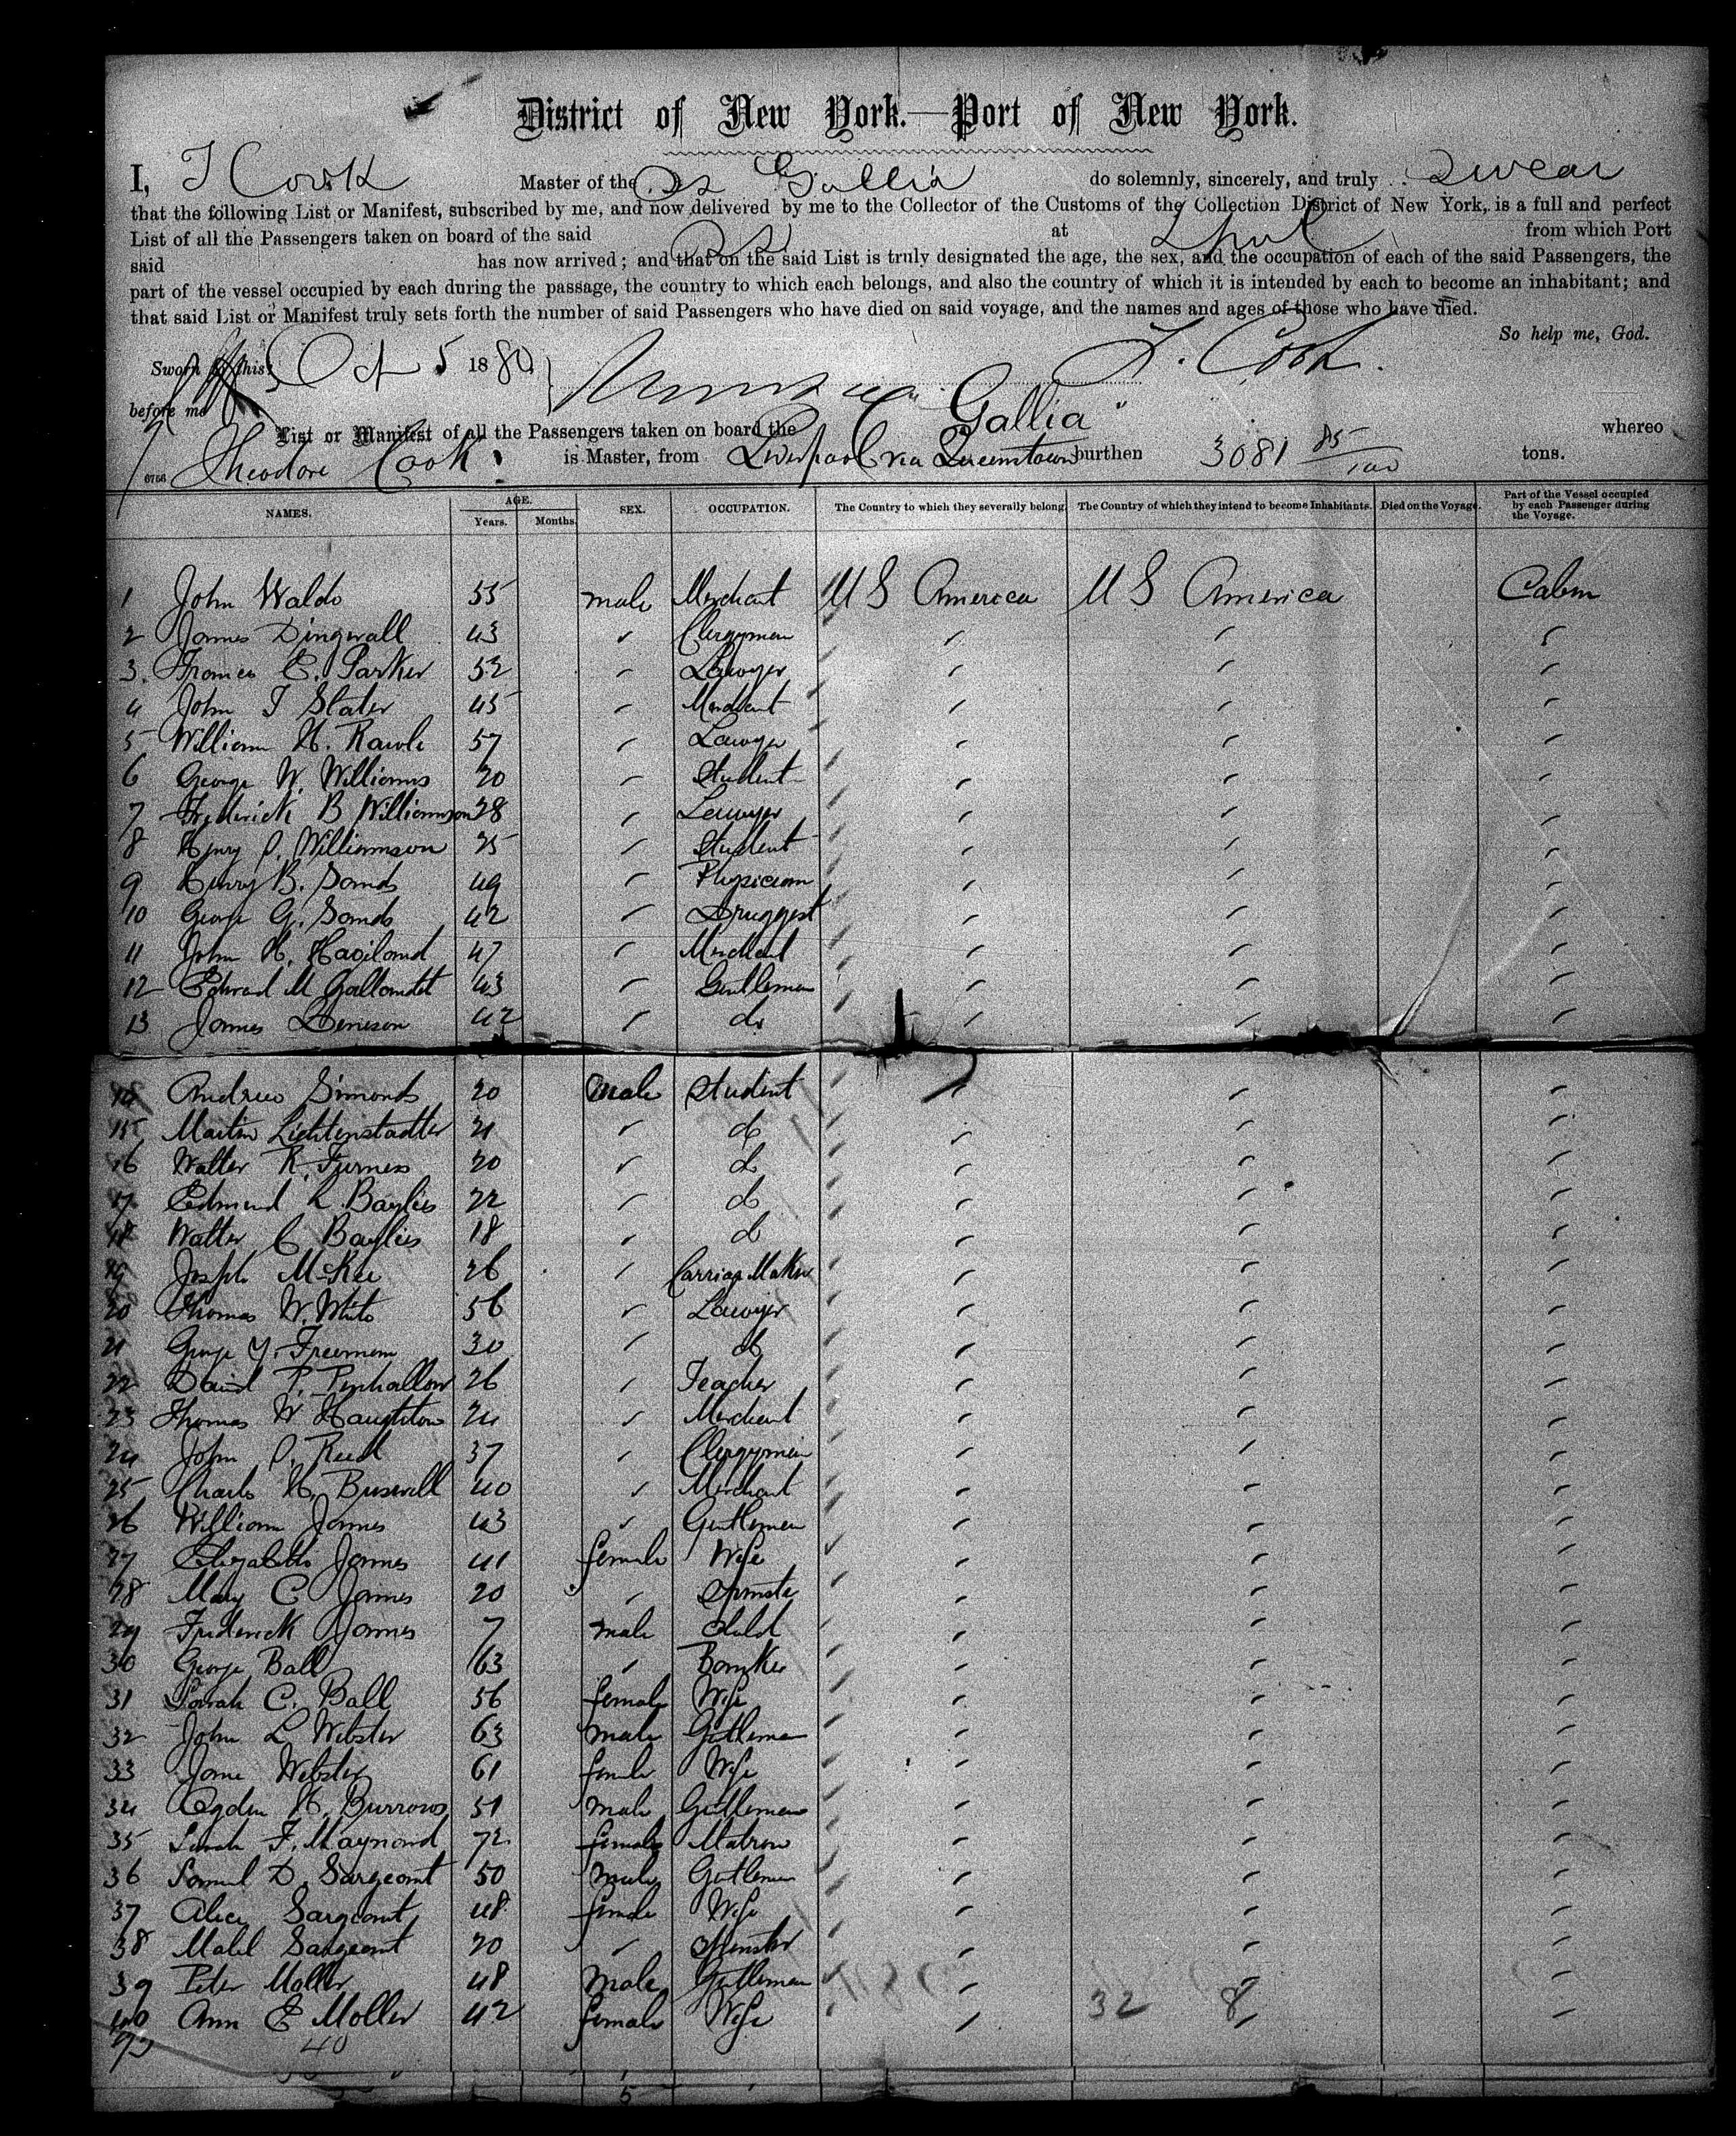 District of New York.—Port of New York.
I, T Cook Master of the SS Gallia do solemnly, sincerely, and truly swear
that the following List or Manifest, subscribed by me, and now delivered by me to the Collector of the Customs of the Collection District of New York, is a full and perfect
List of all the Passengers taken on board of the said SS at Lpool from which Port
said has now arrived; and that on the said List is truly designated the age, the sex, and the occupation of each of the said Passengers, the
part of the vessel occupied by each during the passage, the country to which each belongs, and also the country of which it is intended by each to become an inhabitant; and
that said List or Manifest truly sets forth the number of said Passengers who have died on said voyage, and the names and ages of those who have died.
So help me, God.
Sworn to this Oct 5 1880 T. Cook.
before me
List or Manifest of all the Passengers taken on board the "Gallia" whereo
6766 Theodore Cook is Master, from Liverpool via Queenstown burthen 3081 85/100 tons.
NAMES. AGE. Years. Months. SEX. OCCUPATION. The Country to which they severally belong. The Country of which they intend to become Inhabitants. Died on the Voyage. Part of the Vessel occupied by each Passenger during the Voyage.
1 John Waldo 55 male Merchant U S America U S America Cabin
2 James Dingwall 43 " Clergyman " " "
3. Frances E. Parker 52 " Lawyer " " "
4 John F Slater 45 " Merchant " " "
5 William H. Rawle 57 " Lawyer " " "
6 George W. Williams 20 " Student " " "
7 Frederick B Williamson 28 " Lawyer " " "
8 Henry P. Williamson 25 " Student " " "
9 Henry B. Sands 49 " Physician " " "
10 George G. Sands 42 " Druggest " " "
11 John H. Haviland 47 " Merchant " " "
12 Edward M Gallaudet 43 " Gentleman " " "
13 James Denison 42 " do " " "
14 Andrew Simonds 20 male Student " " "
15 Martin Lichtenstadter 21 " do " " "
16 Walter R. Furness 20 " do " " "
17 Edmund L. Baylies 22 " do " " "
18 Walter C Baylies 18 " do " " "
19 Joseph McKee 26 " Carriage Maker " " "
20 Thomas W. White 56 " Lawyer " " "
21 George Y. Freeman 30 " do " " "
22 David P. Penhallow 26 " Teacher " " "
23 Thomas W Haughton 24 " Merchant " " "
24 John P. Reed 37 " Clergyman " " "
25 Charles H. Buswell 40 " Merchant " " "
26 William James 43 " Gentleman " " "
27 Elizabeth James 41 female Wife " " "
28 Mary C James 20 " Spinster " " "
29 Frederick James 7 male Child " " "
30 George Ball 63 " Banker " " "
31 Sarah C. Ball 56 female Wife " " "
32 John L Webster 63 male Gentleman " " "
33 Jane Webster 61 female Wife " " "
34 Ogden H. Burrows 51 male Gentleman " " "
35 Sarah F. Maynard 72 female Matron " " "
36 Samuel D. Sargeant 50 male Gentleman " " "
37 Alice Sargeant 48 female Wife " " "
38 Mabel Sargeant 20 " Spinster " " "
39 Peter Moller 48 male Gentleman " " "
40 Ann E Moller 42 female Wife " 32 8 " "
40
5